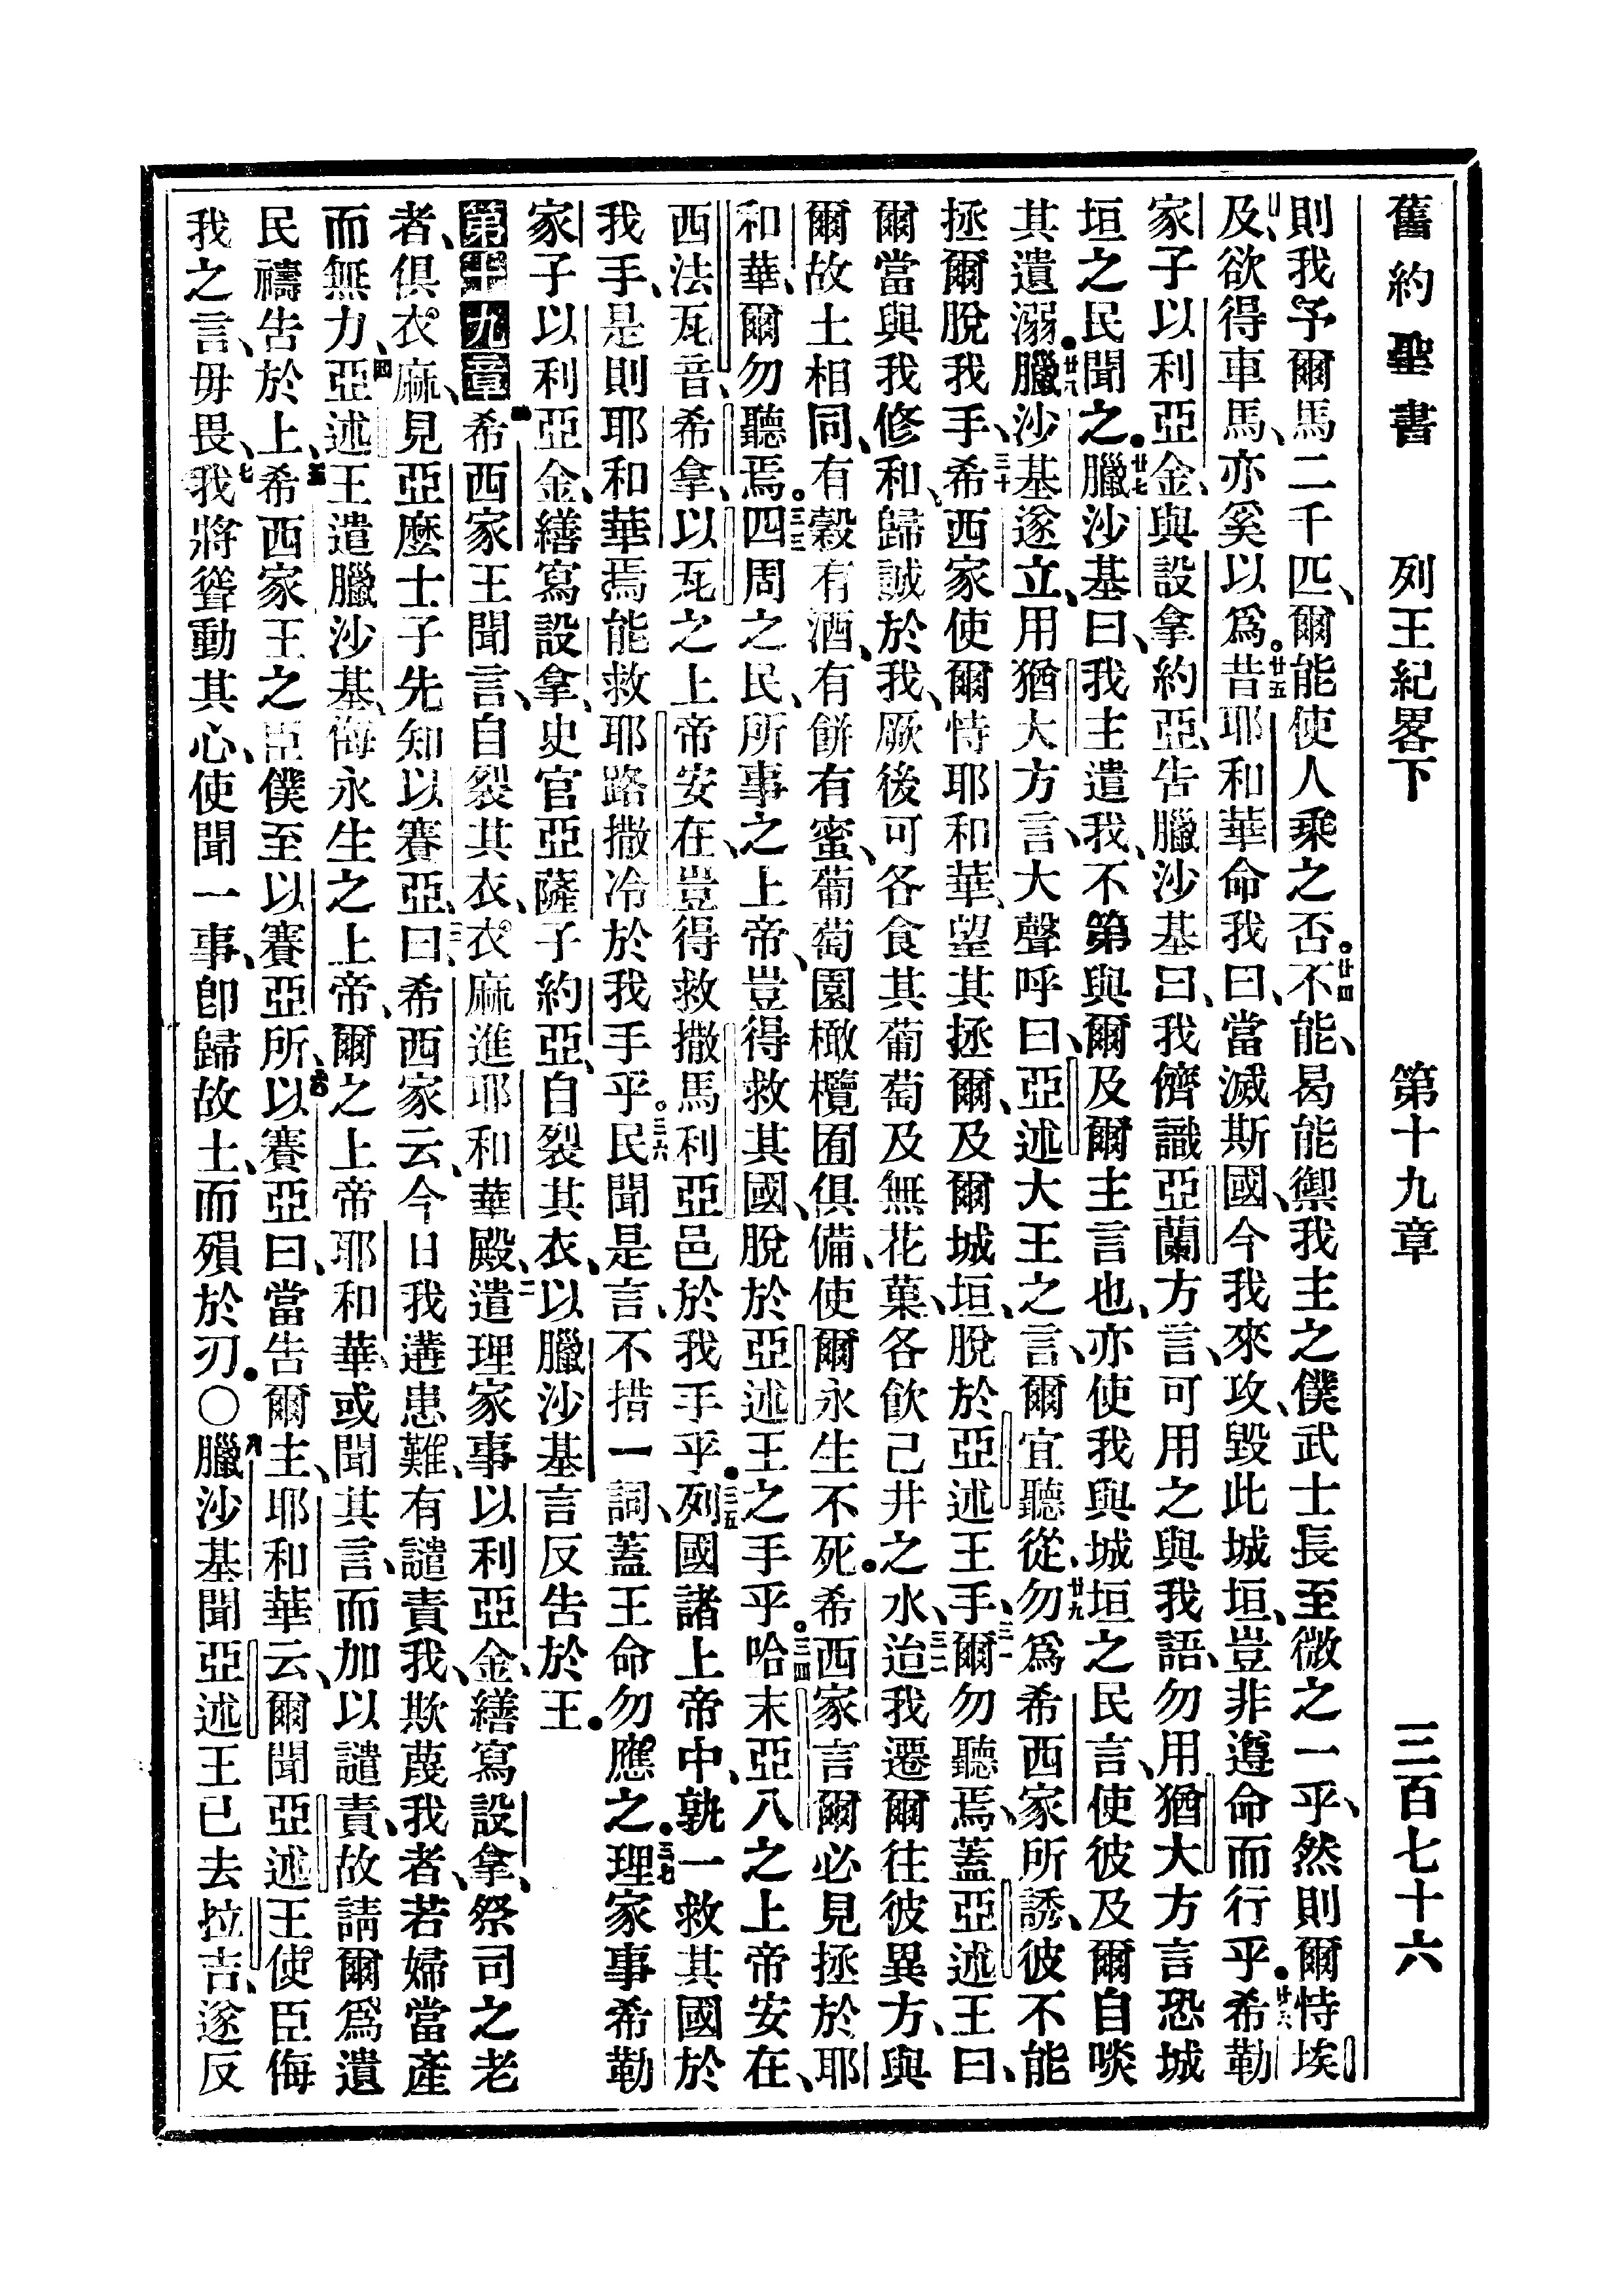 舊約聖書 列王紀畧下 第十九章 三百七十六
則我予爾馬二千匹、爾能使人乘之否。廿四不能、曷能禦我主之僕武士長至微之一乎、然則爾恃埃
及、欲得車馬、亦奚以爲。廿五昔耶和華命我曰、當滅斯國、今我來攻、毀此城垣、豈非遵命而行乎。廿六希勒
家子以利亞金、與設拿約亞、告臘沙基曰、我儕識亞蘭方言、可用之與我語、勿用猶大方言恐城
垣之民聞之。廿七臘沙基曰、我主遣我、不第與爾及爾主言也、亦使我與城垣之民言、使彼及爾自啖
其遺溺。廿八臘沙基遂立、用猶大方言、大聲呼曰、亞述大王之言、爾宜聽從、廿九勿爲希西家所誘、彼不能
拯爾脫我手、三十希西家使爾恃耶和華、望其拯爾、及爾城垣、脫於亞述王手、三一爾勿聽焉、蓋亞述王曰、
爾當與我修和、歸誠於我、厥後可各食其葡萄及無花菓、各飲己井之水、三二迨我遷爾往彼異方、與
爾故土相同、有穀有酒、有餅有蜜、葡萄園橄欖囿俱備、使爾永生不死。希西家言爾必見拯於耶
和華、爾勿聽焉。三三四周之民、所事之上帝、豈得救其國、脫於亞述王之手乎。三四哈末亞八之上帝安在、
西法瓦音、希拿、以瓦之上帝安在、豈得救撒馬利亞邑於我手乎。三五列國諸上帝中、孰一救其國於
我手、是則耶和華焉能救耶路撒冷於我手乎。三六民聞是言、不措一詞、蓋王命勿應之。三七理家事希勒
家子以利亞金、繕寫設拿、史官亞薩子約亞、自裂其衣、以臘沙基言反告於王。
第十九章 一希西家王聞言、自裂其衣、衣麻進耶和華殿、二遣理家事以利亞金、繕寫設拿、祭司之老
者、俱衣麻、見亞麼士子先知以賽亞、三曰、希西家云、今日我遘患難、有譴責我、欺蔑我者、若婦當產
而無力、四亞述王遣臘沙基、侮永生之上帝、爾之上帝耶和華、或聞其言、而加以譴責、故請爾爲遺
民禱告於上、五希西家王之臣僕至以賽亞所、六以賽亞曰、當告爾主、耶和華云、爾聞亞述王使臣侮
我之言、毋畏、七我將聳動其心、使聞一事、卽歸故土、而殞於刃。〇八臘沙基聞亞述王已去拉吉、遂反